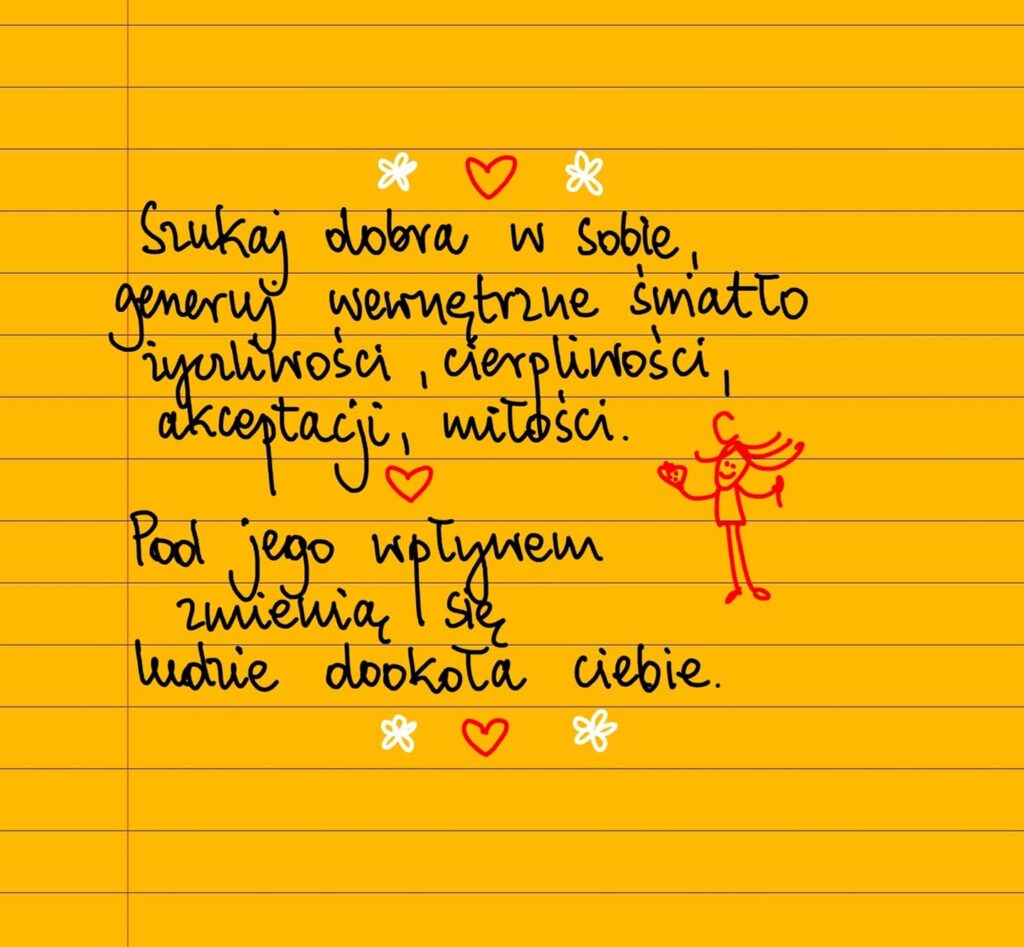 Szukaj dobra w sobie,
generuj wewnętrzne światło
życzliwości, cierpliwości,
akceptacji, miłości.
Pod jego wpływem
zmienią się
ludzie dookoła ciebie.